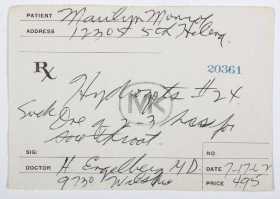 PATIENT Marilyn Monroe
ADDRESS 12305 5th Helena
20361
Rx
Hydrozets #24
Suck One q 2-3 hrs for
sore throat.
SIG:
NO.
DOCTOR H Engelberg M.D. DATE 7-17-62
9730 Wilshire PRICE 495